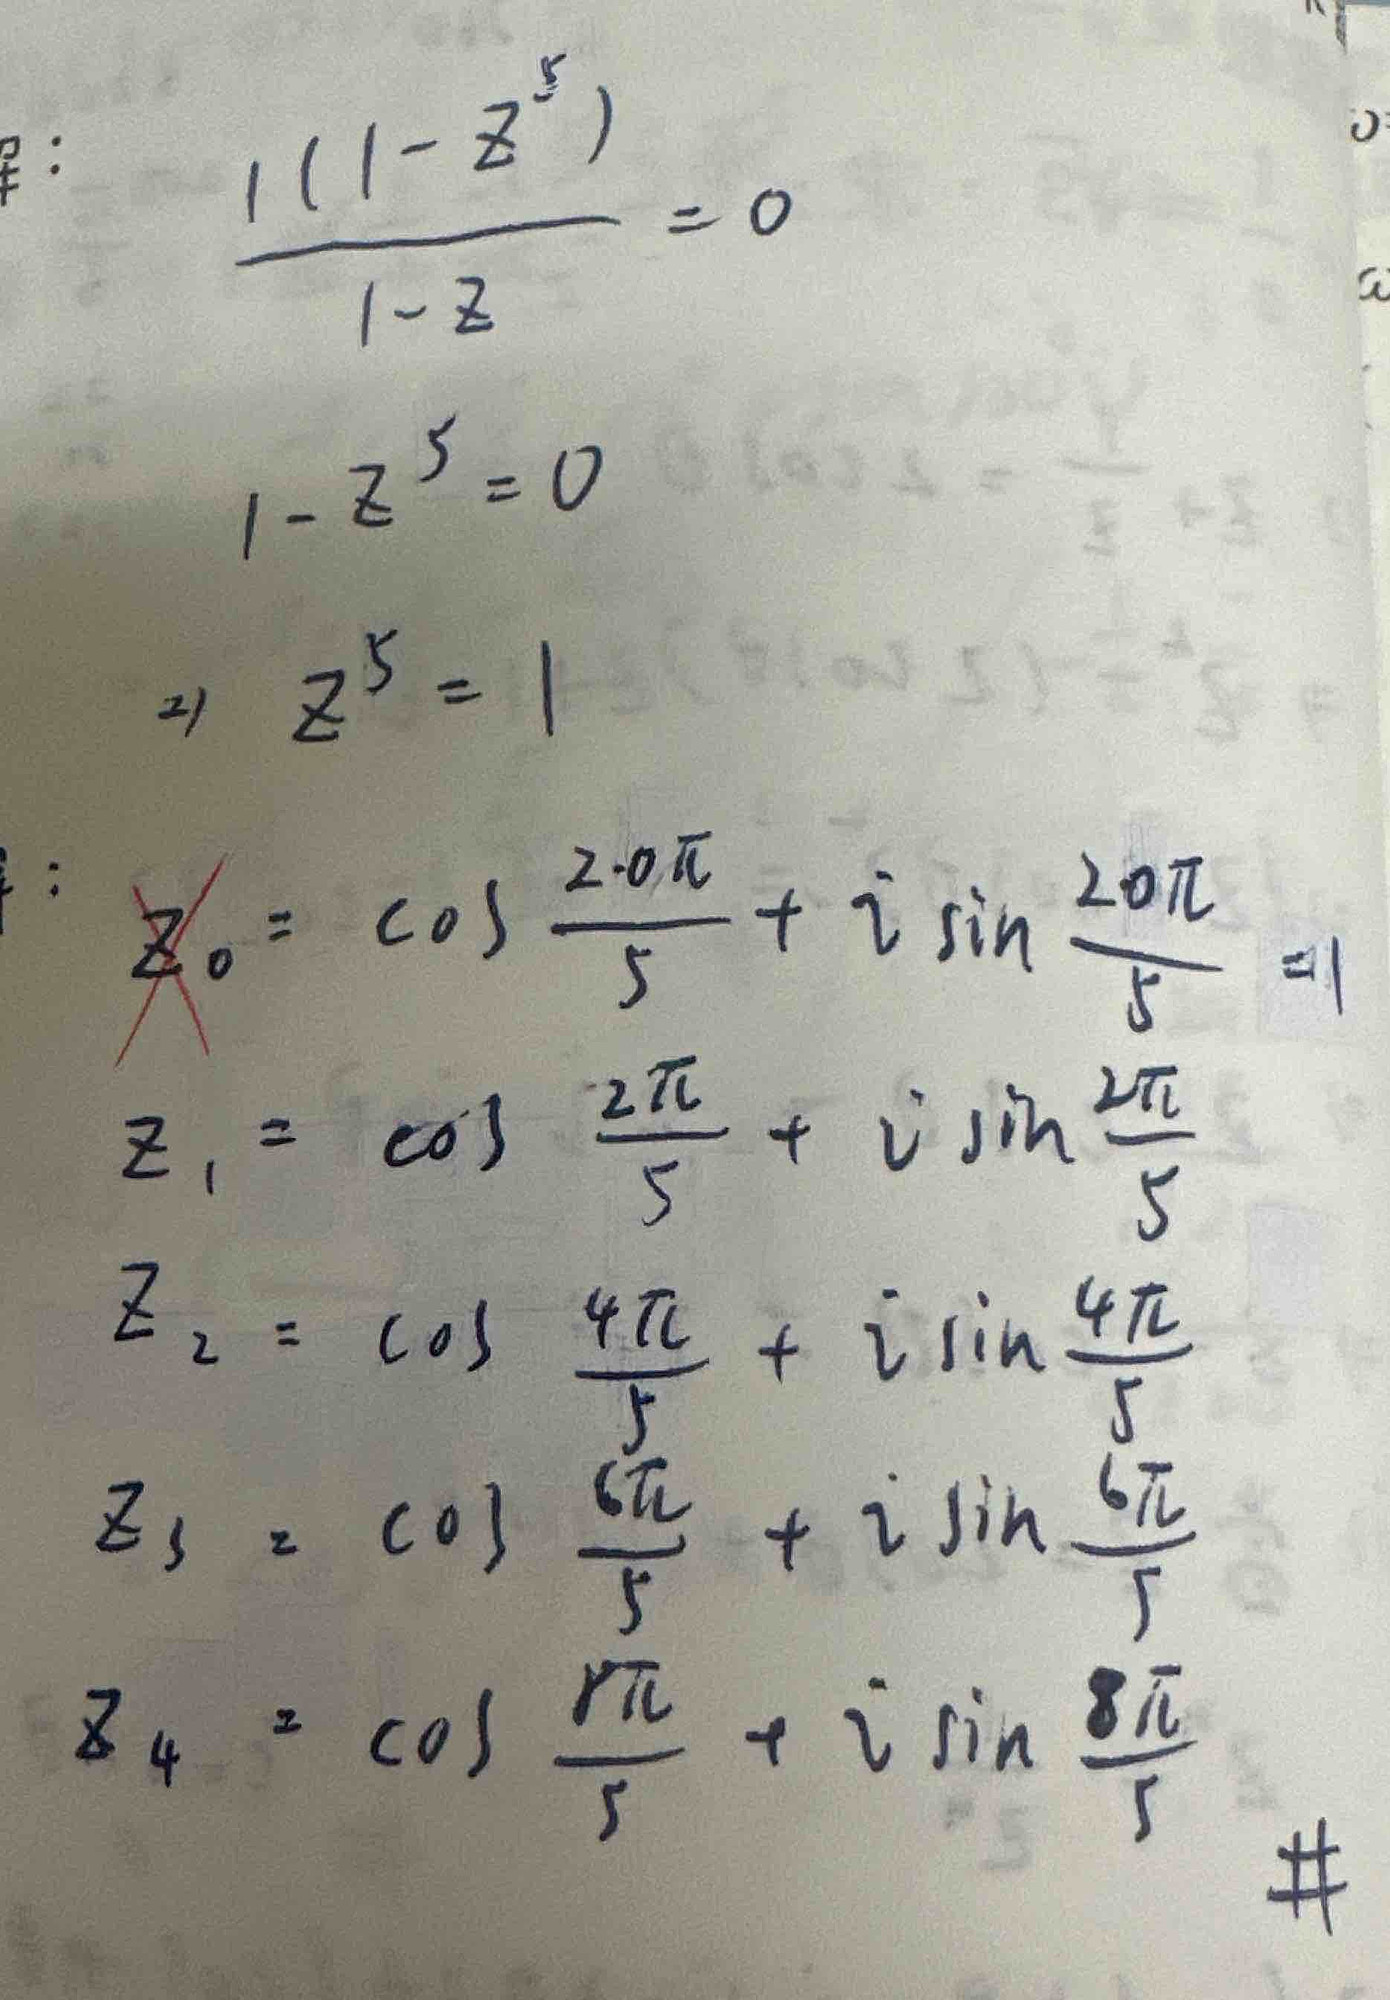 解: 1(1-z⁵)/(1-z) = 0
1-z⁵=0
⇒ z⁵=1
z₀ = cos 2·0π/5 + i sin 2·0π/5 =1
z₁ = cos 2π/5 + i sin 2π/5
z₂ = cos 4π/5 + i sin 4π/5
z₃ = cos 6π/5 + i sin 6π/5
z₄ = cos 8π/5 + i sin 8π/5
#